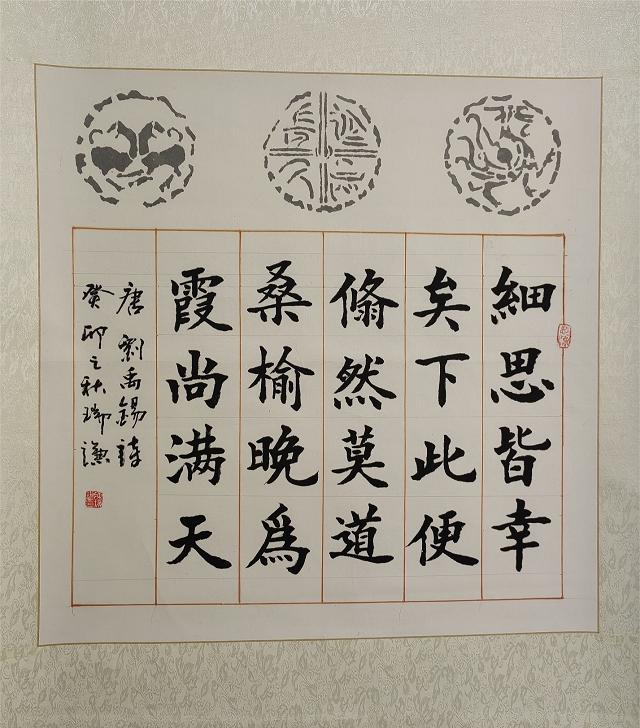 細思皆幸
矣下此便
翛然莫道
桑榆晚爲
霞尚满天
唐劉禹錫詩
癸卯之秋瑞謙